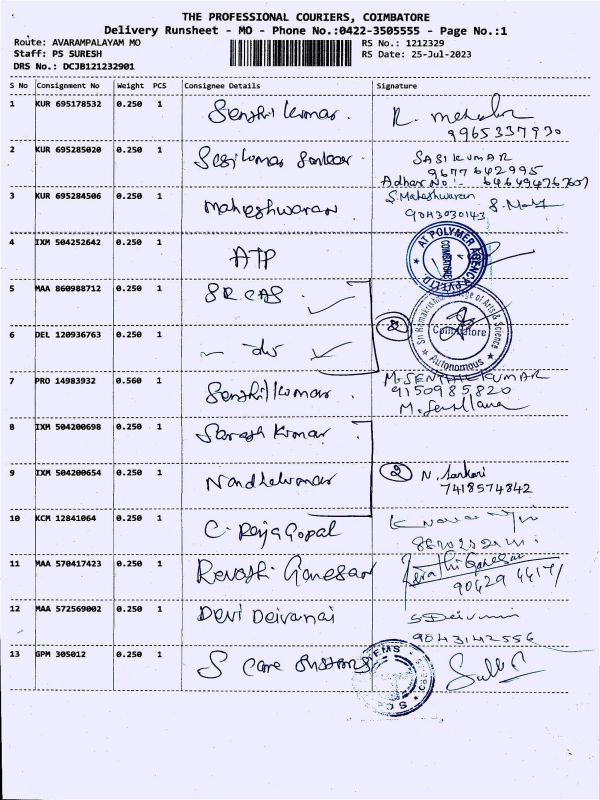 THE PROFESSIONAL COURIERS, COIMBATORE
Delivery Runsheet - MO - Phone No.:0422-3505555 - Page No.:1
Route: AVARAMPALAYAM MO RS No.: 1212329
Staff: PS SURESH RS Date: 25-Jul-2023
DRS No.: DCJB121232901
S No Consignment No Weight PCS Consignee Details Signature
1 KUR 695178532 0.250 1 Senthil Kumar.
9965337930
2 KUR 695285020 0.250 1 SASIKUMAR
9677642995
Adhar No :-
3 KUR 695284506 0.250 1 Maheshwaran S. Maheshwaran
9043030143
4 IXM 504252642 0.250 1 ATP AT POLYMER AGENCY PVT LTD COIMBATORE
5 MAA 860988712 0.250 1 SRCAS
6 DEL 120936763 0.250 1 2 Sri Ramakrishna College of Arts & Science Coimbatore Autonomous
7 PRO 14983932 0.560 1 Senthil Kumar M. SENTHIL KUMAR
9150985820
8 IXM 504200698 0.250 1 Kumar
9 IXM 504200654 0.250 1 Nandhakumar 2 N. Sankari
7418574842
10 KCM 12841064 0.250 1 C. Raja Gopal
11 MAA 570417423 0.250 1 Revathi Ganesan
12 MAA 572569002 0.250 1 Devi Deivanai
9043142556
13 GPM 305012 0.250 1 S Care